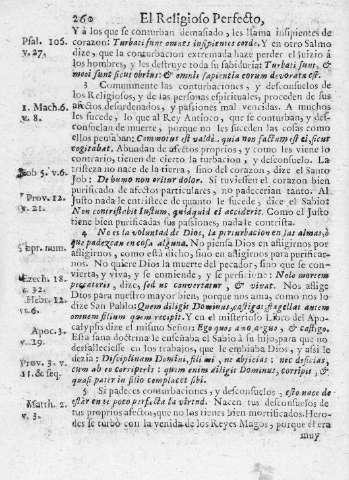 260 El Religioso Perfecto,
Y à los que se conturban demasiado, les llama insipientes de
Psal. 106. corazon: Turbati sunt omnes insipientes corde. Y en otro Salmo
v. 27. dize, que la conturbacion extremada haze perder el juizio à
los hombres, y les destruye toda su sabiduria: Turbati sunt, &
moti sunt sicut ebrius: & omnis sapientia eorum devorata est.
3 Comunmente las conturbaciones, y desconsuelos de
los Religiosos, y de las personas espirituales, proceden de sus
1. Mach. 6. afectos desordenados, y passiones mal vencidas. A muchos
v. 8. les sucede, lo que al Rey Antioco, que se conturban, y des-
consuelan de muerte, porque no les suceden las cosas como
ellos pensaban: Commotus est valdè, quia non factum est ei, sicut
cogitabat. Abundan de afectos proprios, y como les viene lo
contrario, tienen de cierto la turbacion, y desconsuelo. La
tristeza no nace de la tierra, sino del corazon, dize el Santo
Job 5. v. 6. Job: De humo non oritur dolor. Si tuviessen el corazon bien
purificado de afectos particulares, no padecerian tanto. Al
Prov. 12. Justo nada le entristece de quanto le sucede, dize el Sabio:
v. 21. Non contristabit Iustum, quidquid ei acciderit. Como el Justo
tiene bien purificadas sus passiones, nada le contrista.
4 No es la voluntad de Dios, la perturbacion en las almas, ò
que padezcan en cosa alguna. No piensa Dios en afligirnos por
Supr. num. afligirnos, como està dicho, sino en afligirnos para purificar-
nos. No quiere Dios la muerte del pecador, sino que se con-
vierta, y viva, y se enmiende, y se perficione: Nolo mortem
Ezech. 18. peccatoris, dize, sed ut convertatur, & vivat. Nos aflige
v. 32. Dios para nuestro mayor bien, porque nos ama, como nos lo
Hebr. 12. dize San Pablo: Quem diligit Dominus, castigat; flagellat autem
v. 6. omnem filium quem recipit. Y en el misterioso Libro del Apo-
calypsis dize el mismo Señor: Ego quos amo arguo, & castigo.
Apoc. 3. Esta sana doctrina le enseñaba el Sabio à su hijo, para que no
v. 19. desfalleciesse en los trabajos, que le embiaba Dios, y assi le
dezia: Disciplinam Domini, fili mi, ne abjicias; nec deficias,
Prov. 3. v. cum ab eo corriperis: quem enim diligit Dominus, corripit, &
11. & seq. quasi pater in filio complacet sibi.
5 Si padeces conturbaciones, y desconsuelos, esto nace de
Matth. 2. estàr en ti poco perfecta la virtud. Nacen tus desconsuelos de
v. 3. tus proprios afectos, que no los tienes bien mortificados. Hero-
des se turbò con la venida de los Reyes Magos, porque èl era
muy